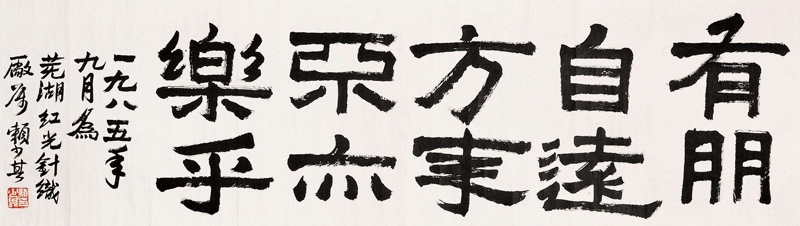 有朋
自遠
方来
不亦
樂乎
一九八五年
九月為
芜湖红光針織
廠属 賴少其